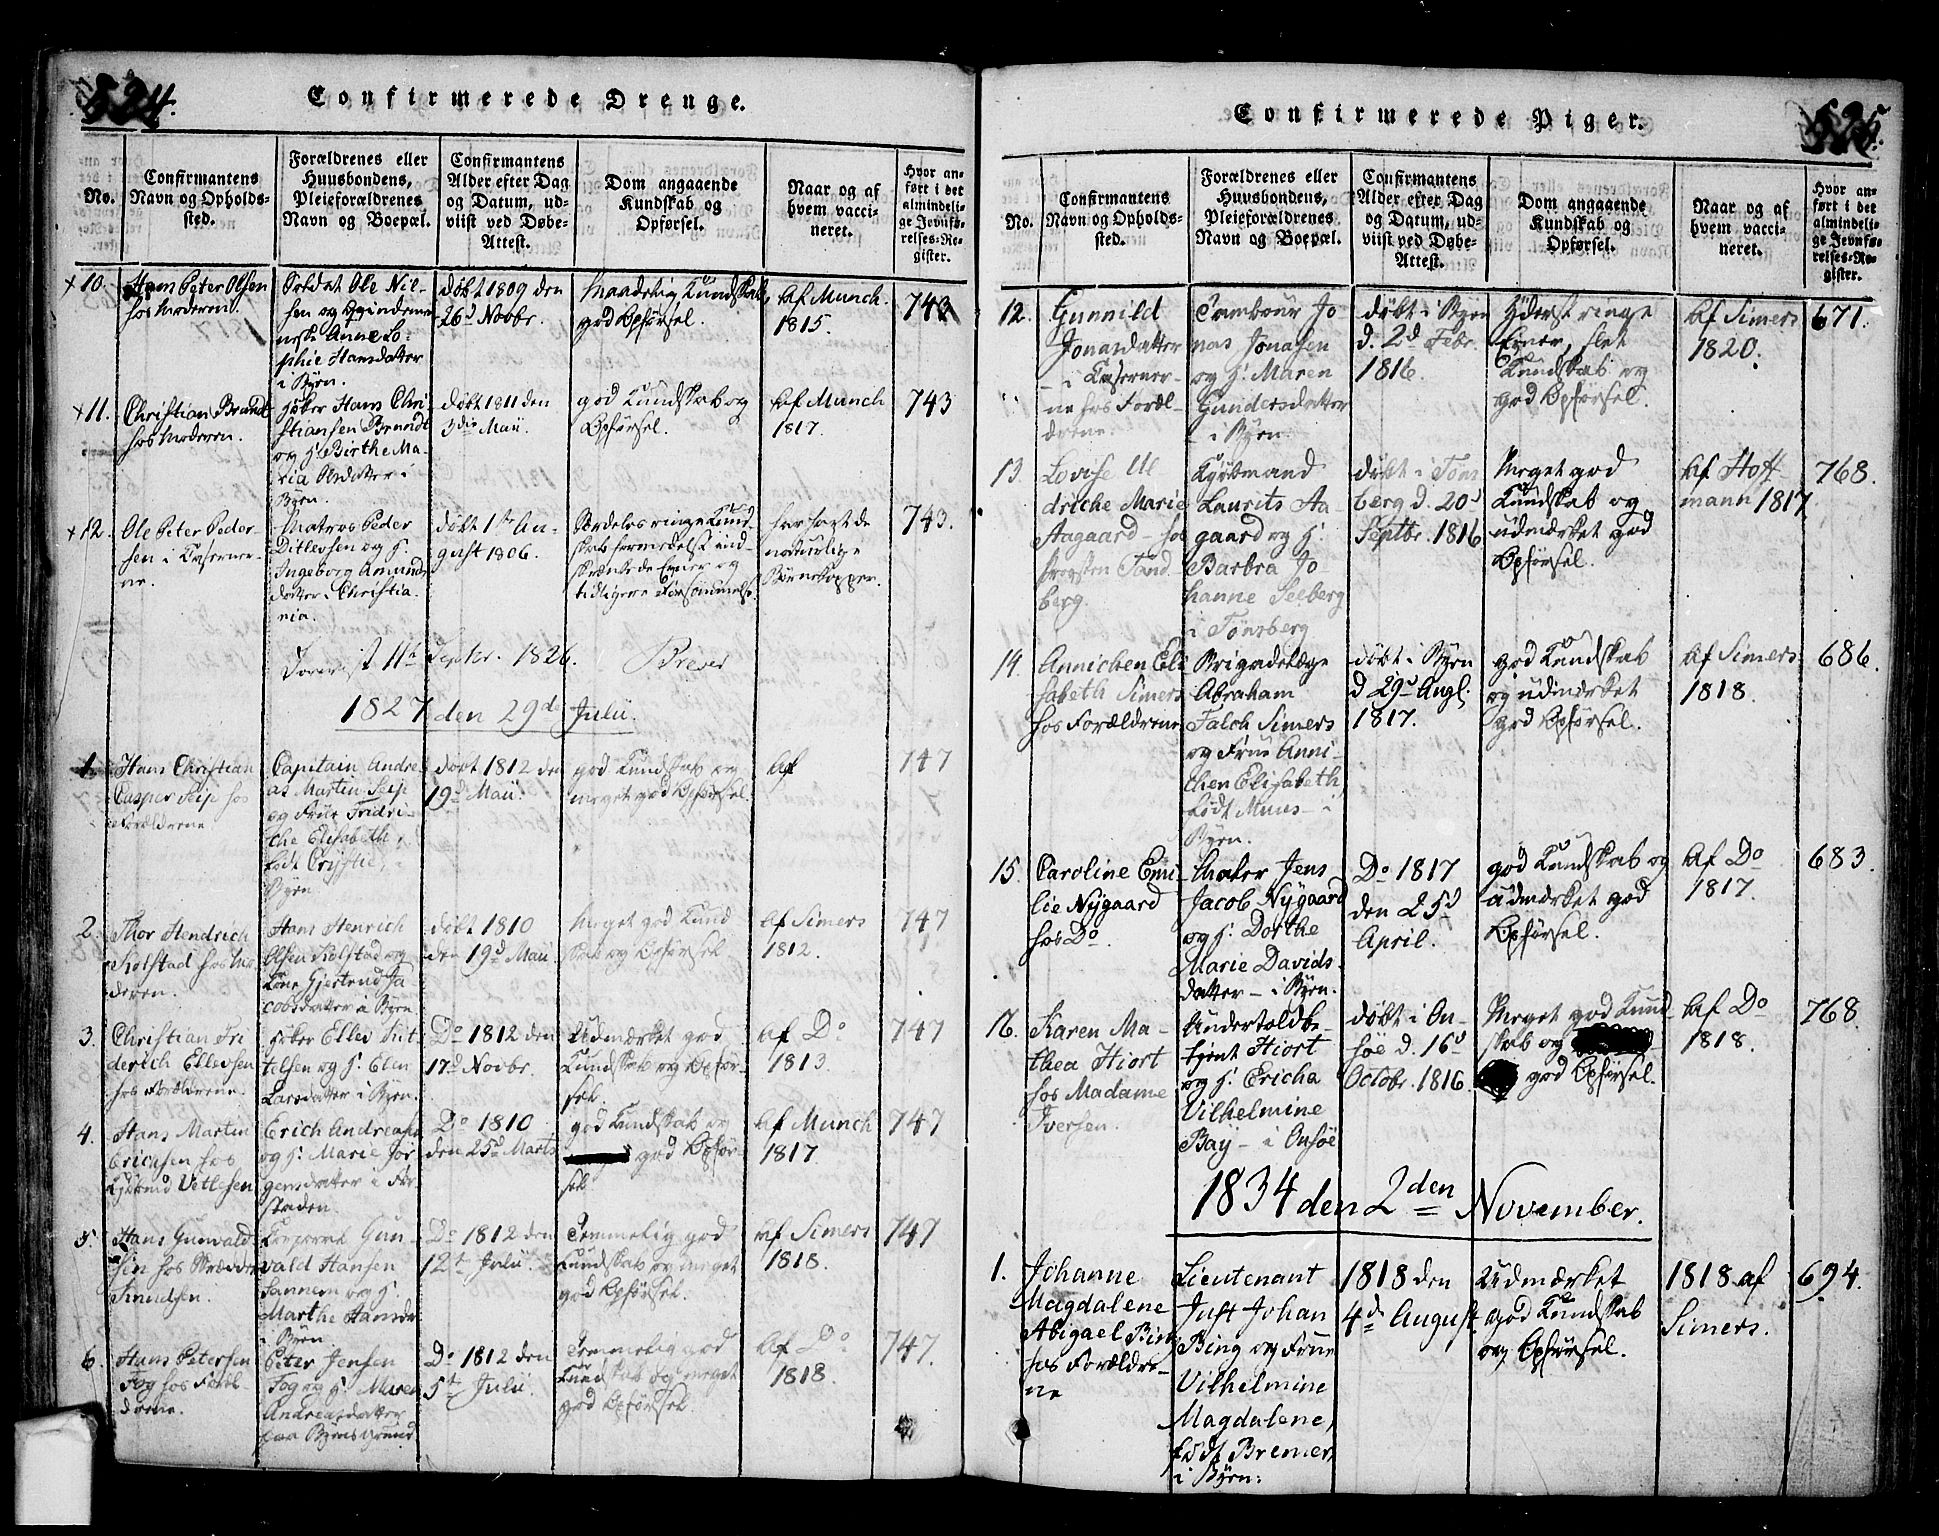 524.
Confirmerede Drenge.
No.
Confirmantens
Navn og Opholds-
sted.
Forældrenes eller
Huusbondens,
Pleieforældrenes
Navn og Boepæl.
Confirmantens
Alder efter Dag
og Datum, ud-
viist ved Døbe-
Attest.
Dom angaaende
Kundskab og
Opførsel.
Naar og af
hvem vacci-
neret.
Hvor an-
ført i det
almindeli-
ge Jevnfø-
relses-Re-
gister.
+ 10.
Hans Peter Olsen
hos Moderen.
Soldat Ole Nil-
sen og Qvinde
Anne So-
phie Hansdatter
i Byen.
døbt 1809 den
26d Novbr.
Maadelig Kundskab,
god Opførsel.
Af Munch.
1815.
743
+ 11.
Christian Brandt
hos Moderen.
Hans Chri-
stiansen Brandt
og H. Birthe Ma-
ria Olsdatter i
Byen.
døbt 1811 den
3die Maii.
god Kundskab og
Opførsel.
Af Munch
1817.
743
+ 12.
Ole Peter Peder-
sen i Caserner-
ne.
Matros Peder
Ditlevsen og H.
Ingeborg Amunds-
datter i Christia-
nia.
døbt 1ste Au-
gust 1806.
Særdeles ringe Kund-
skab formedelst ind-
skrænkede Evner og
tidligere Forsømmelse.
har havt de
naturlige
Børnekopper.
743.
11te Septbr. 1826.
1827 den 29de Julii.
1.
Hans Christian
Casper Seip hos
Forældrene
Capitain Andre-
as Martin Seip
og Frue Fridri-
che Elisabeth,
født Crystie, i
Byen
døbt 1812 den
19d Maii.
god Kundskab og
meget god Opførsel.
Af
747
2.
Thor Hendrich
Kolstad hos Mo-
deren.
Hans Henrich
Olsen Kolstad og
Kone Gjertrud Ja-
cobsdatter i Byen
døbt 1810
den 19d Maii
Meget god Kund-
skab og Opførsel
Af Simers
1812.
747
3.
Christian Fri-
derich Ellevsen
hos Forældrene.
Ellev Kit-
telsen og H. Elen
Larsdatter i Byen.
Do 1812 den
17d Novbr.
Udmærket god
Kundskab og Opfør-
sel.
Af Do
1813.
747
4.
Hans Martin
Erichsen hos
Vetlesen
Erich Andreasen
og H. Marie Jør-
gensdatter i For-
staden.
Do 1810
den 25d Marts
god Kundskab og
god Opfør-
sel
Af Munch
1817
747
5.
Hans Gunvald-
sen hos Skrædder
Knudsen.
Gun-
vald Hansen
Sannem og H.
Marthe Hansda.
i Byen
Do 1812 den
12te Julii
Temmelig god
Kundskab og meget
god Opførsel.
Af Simers
1818.
747
6.
Hans Petersen
Fog hos Foræl-
drene.
Peter Jensen
Fog og H. Maren
Andreasdatter
paa Byens Grund
Do 1812 den
5te Julii.
Temmelig god
Kundskab og meget
god Opførsel.
Af Do
1818.
747.
525.
Confirmerede Piger.
No.
Confirmantens
Navn og Opholds-
sted.
Forældrenes eller
Huusbondens,
Pleieforældrenes
Navn og Boepæl.
Confirmantens
Alder efter Dag
og Datum, ud-
viist ved Døbe-
Attest.
Dom angaaende
Kundskab og
Opførsel.
Naar og af
hvem vacci-
neret.
Hvor an-
ført i det
almindeli-
ge Jevnfø-
relses-Re-
gister.
12.
Gunnild
Jonasdatter
- i Caserner-
ne hos Foræl-
drene.
Tambour Jo-
nas Jonasen
og H. Maren
Gundersdatter
- i Byen.
døbt i Byen
d. 2d Febr.
1816.
Yderst ringe
Evner, slet
Kundskab og
god Opførsel.
Af Simers
1820.
671.
13.
Lovise Ul-
driche Marie
Aagaard - hos
Provsten Tand-
berg.
Kjøbmand
Laurits Aa-
gaard og H.
Barbra Jo-
hanne Seeberg
i Tønsberg
døbt i Tøns-
berg d. 20d
Septbr. 1816
Meget god
Kundskab og
udmærket god
Opførsel.
Af Hoff-
mann 1817
768.
14.
Annichen Eli-
sabeth Simers
hos Forældrene
Brigadelæge
Abraham
Falch Simers
og Frue Anni-
chen Elisabeth,
født Muus - i
Byen.
døbt i Byen
d 29d Augt.
1817.
god Kundskab
og udmærket
god Opførsel.
Af Simers
1818.
686.
15.
Caroline Emi-
lie Nygaard
hos Do.
Maler Jens
Jacob Nygaard
og H. Dorthe
Marie Davids-
datter - i Byen.
Do 1817
den 25d
April.
god Kundskab og
udmærket god
Opførsel.
Af Do
1817.
683.
16.
Karen Ma-
thea Hiort
hos Madame
Iversen.
Undertoldbe-
tjent Hiort
og H. Ericha
Vilhelmine
Bay - i Onsøe
døbt i On-
søe d. 16d
Octobr. 1816.
Meget god Kund-
skab og
god Opførsel.
Af Do
1818.
768.
1834 den 2den November.
1.
Johanne
Magdalene
Abigael Bing
hos Forældre-
ne
Lieutenant
Just Johan
Bing og Frue
Vilhelmine
Magdalene,
født Bremer,
i Byen.
1818 den
4de August.
Udmærket
god Kundskab
og Opførsel.
1818 af
Simers.
694.